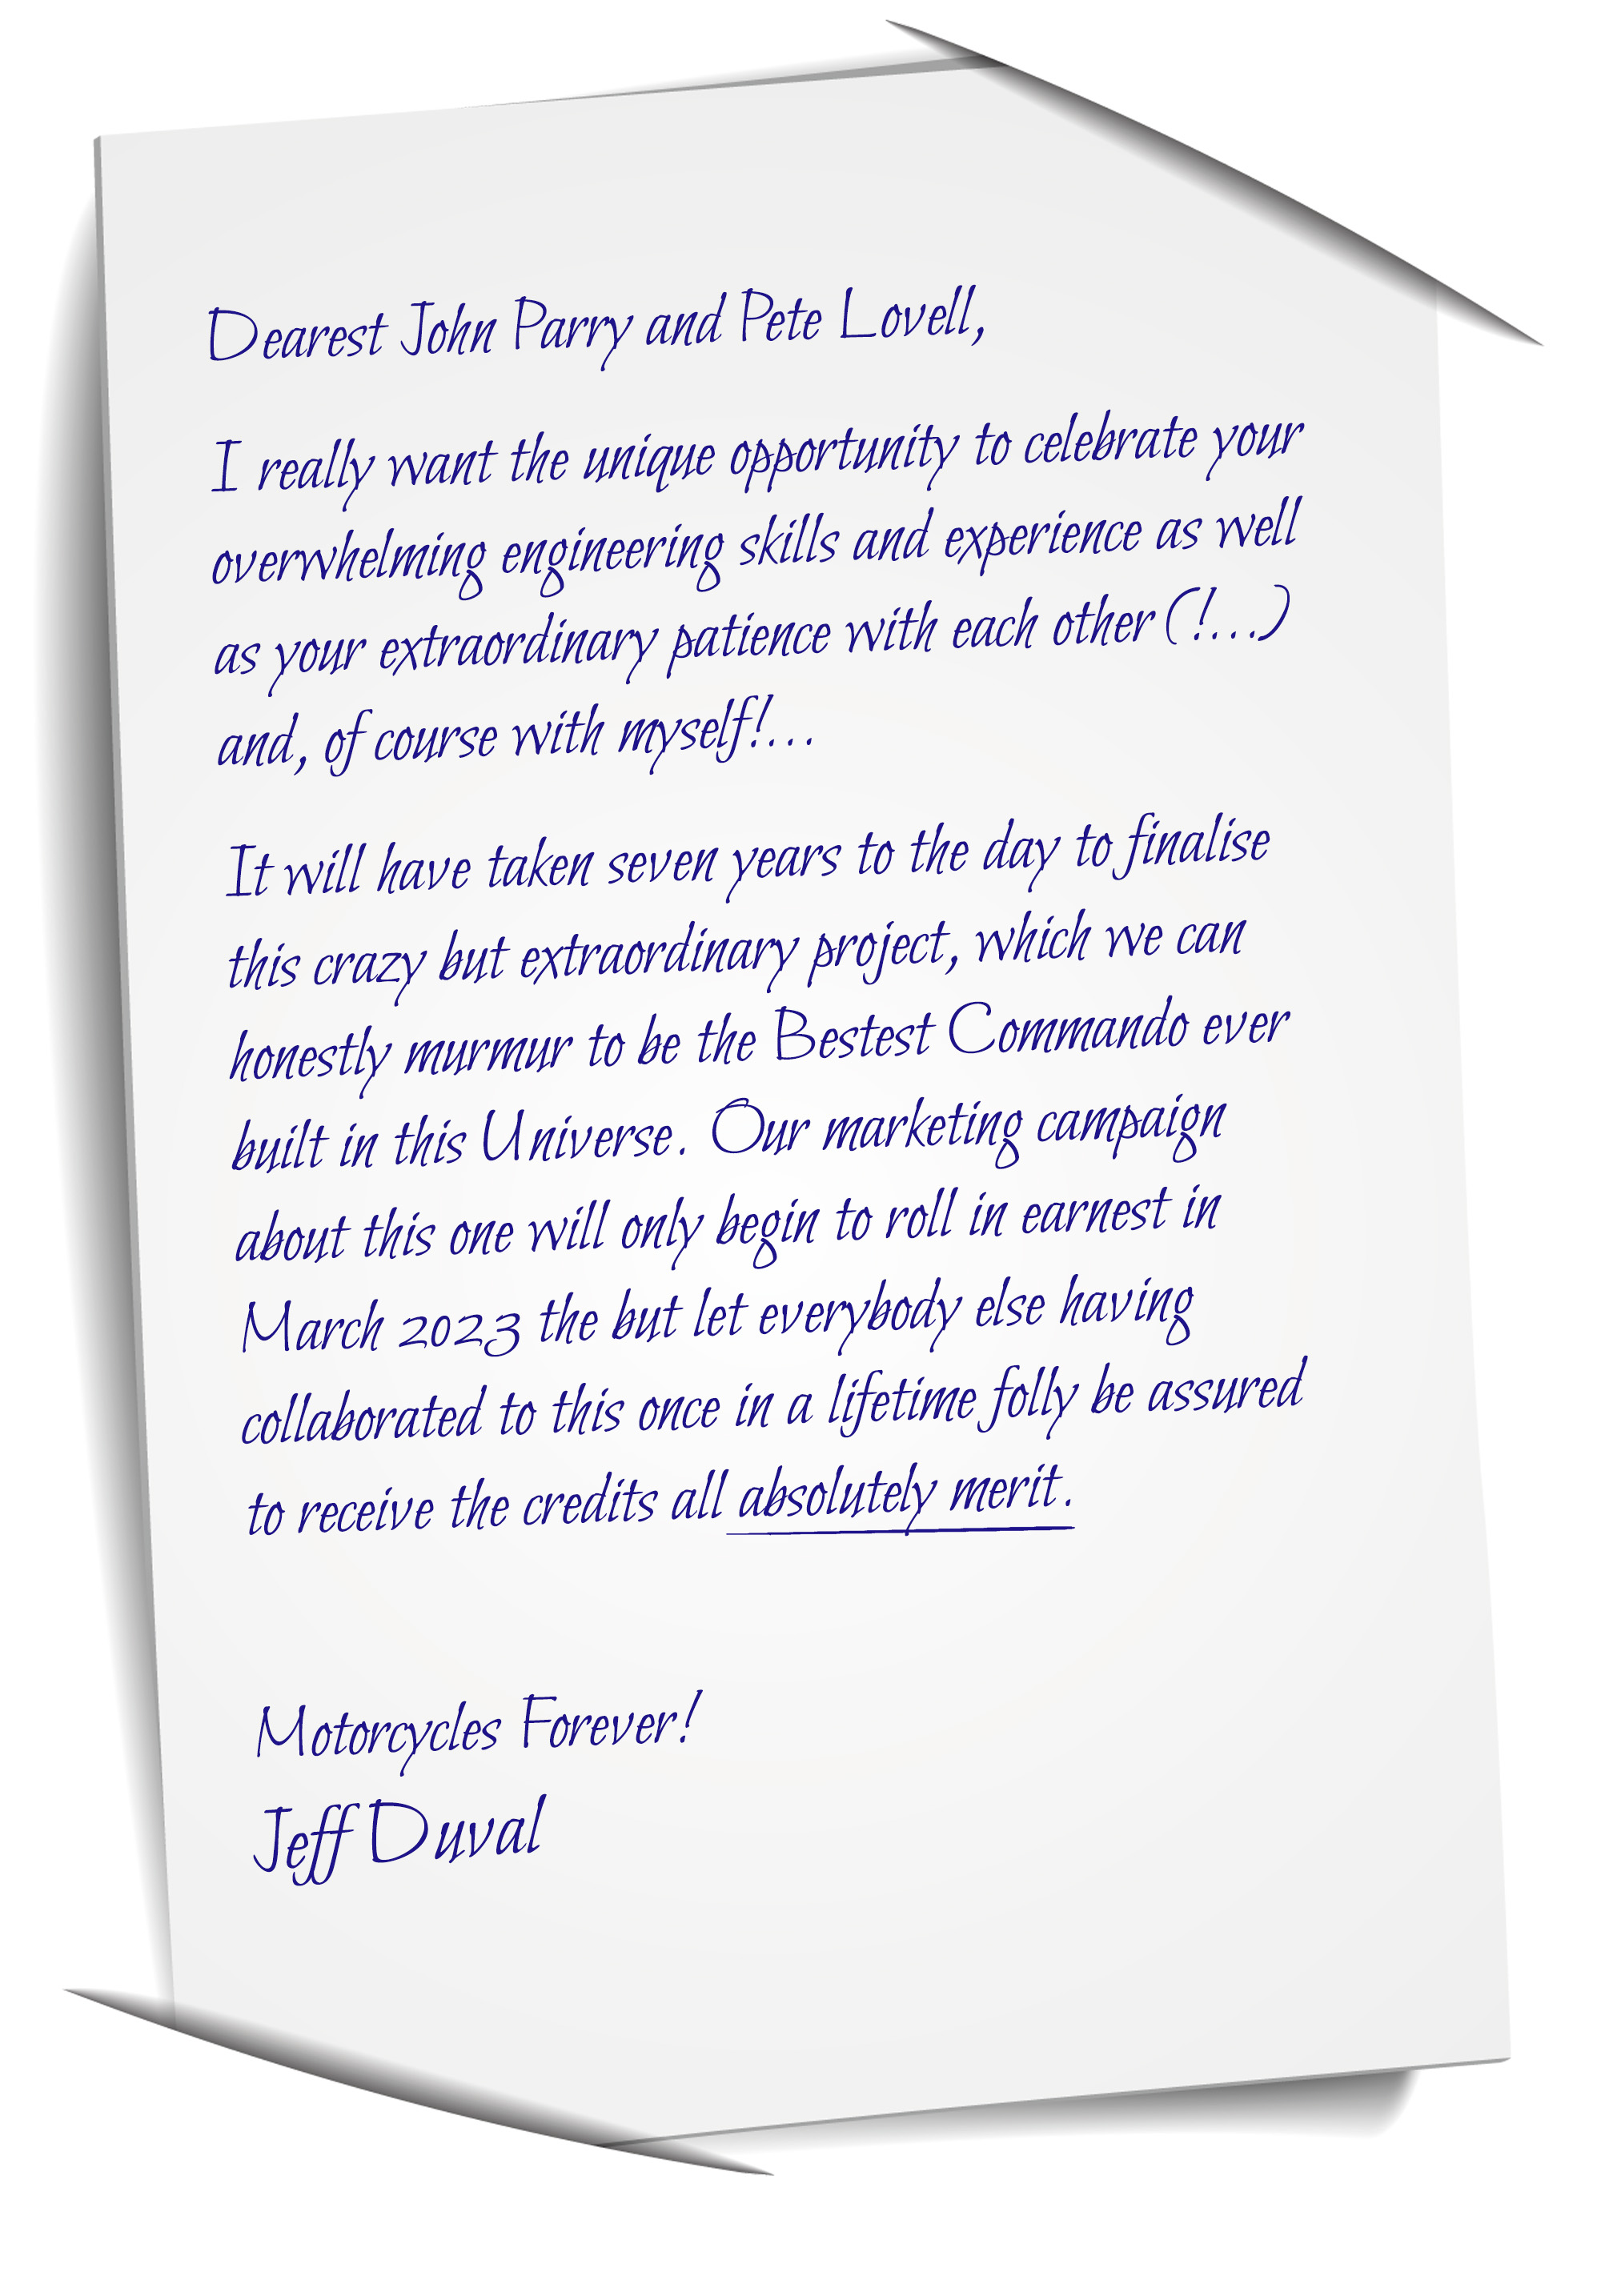 Dearest John Parry and Pete Lovell,
I really want the unique opportunity to celebrate your
overwhelming engineering skills and experience as well
as your extraordinary patience with each other (!...)
and, of course with myself!...
It will have taken seven years to the day to finalise
this crazy but extraordinary project, which we can
honestly murmur to be the Bestest Commando ever
built in this Universe. Our marketing campaign
about this one will only begin to roll in earnest in
March 2023 the but let everybody else having
collaborated to this once in a lifetime folly be assured
to receive the credits all absolutely merit.
Motorcycles Forever!
Jeff Duval